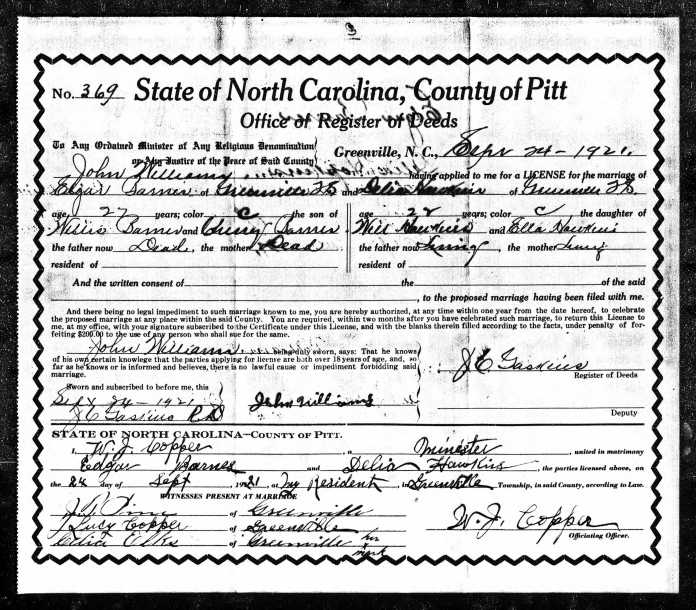 3
No. 369 State of North Carolina, County of Pitt
Office of Register of Deeds
To Any Ordained Minister of Any Religious Denomination
or Any Justice of the Peace of Said County
Greenville, N. C., Sept 24 - 1921
John Williams having applied to me for a LICENSE for the marriage of
of Greenville and Delia Hawkins of Greenville
age 27 years; color C the son of
Willis and
the father now Dead, the mother Dead
resident of
age 22 years; color C the daughter of
Will Hawkins and Ella Hawkins
the father now Living, the mother Living
resident of
And the written consent of the of the said
, to the proposed marriage having been filed with me.
And there being no legal impediment to such marriage known to me, you are hereby authorized, at any time within one year from the date hereof, to celebrate
the proposed marriage at any place within the said County. You are required, within two months after you have celebrated such marriage, to return this License to
me, at my office, with your signature subscribed to the Certificate under this License, and with the blanks therein filled according to the facts, under penalty of for-
feiting $200.00 to the use of any person who shall sue for the same.
John Williams being duly sworn, says: That he knows
of his own certain knowlege that the parties applying for license are both over 18 years of age, and, so
far as he knows or is informed and believes, there is no lawful cause or impediment forbidding said
marriage.
Sworn and subscribed to before me, this
Sept 24 - 1921
J C Gaskins R.D
John Williams
J C Gaskins
Register of Deeds
Deputy
STATE OF NORTH CAROLINA—COUNTY OF PITT.
I, W. J. Copper, a Minester, united in matrimony
Edgar Barnes and Delia Hawkins, the parties licensed above, on
the 24 day of Sept 1921, at my Resident, in Greenville Township, in said County, according to Law.
WITNESSES PRESENT AT MARRIAGE
of Greenville
Lucy Copper of Greenville
Celia Elks of Greenville her
mark
W. J. Copper
Officiating Officer.